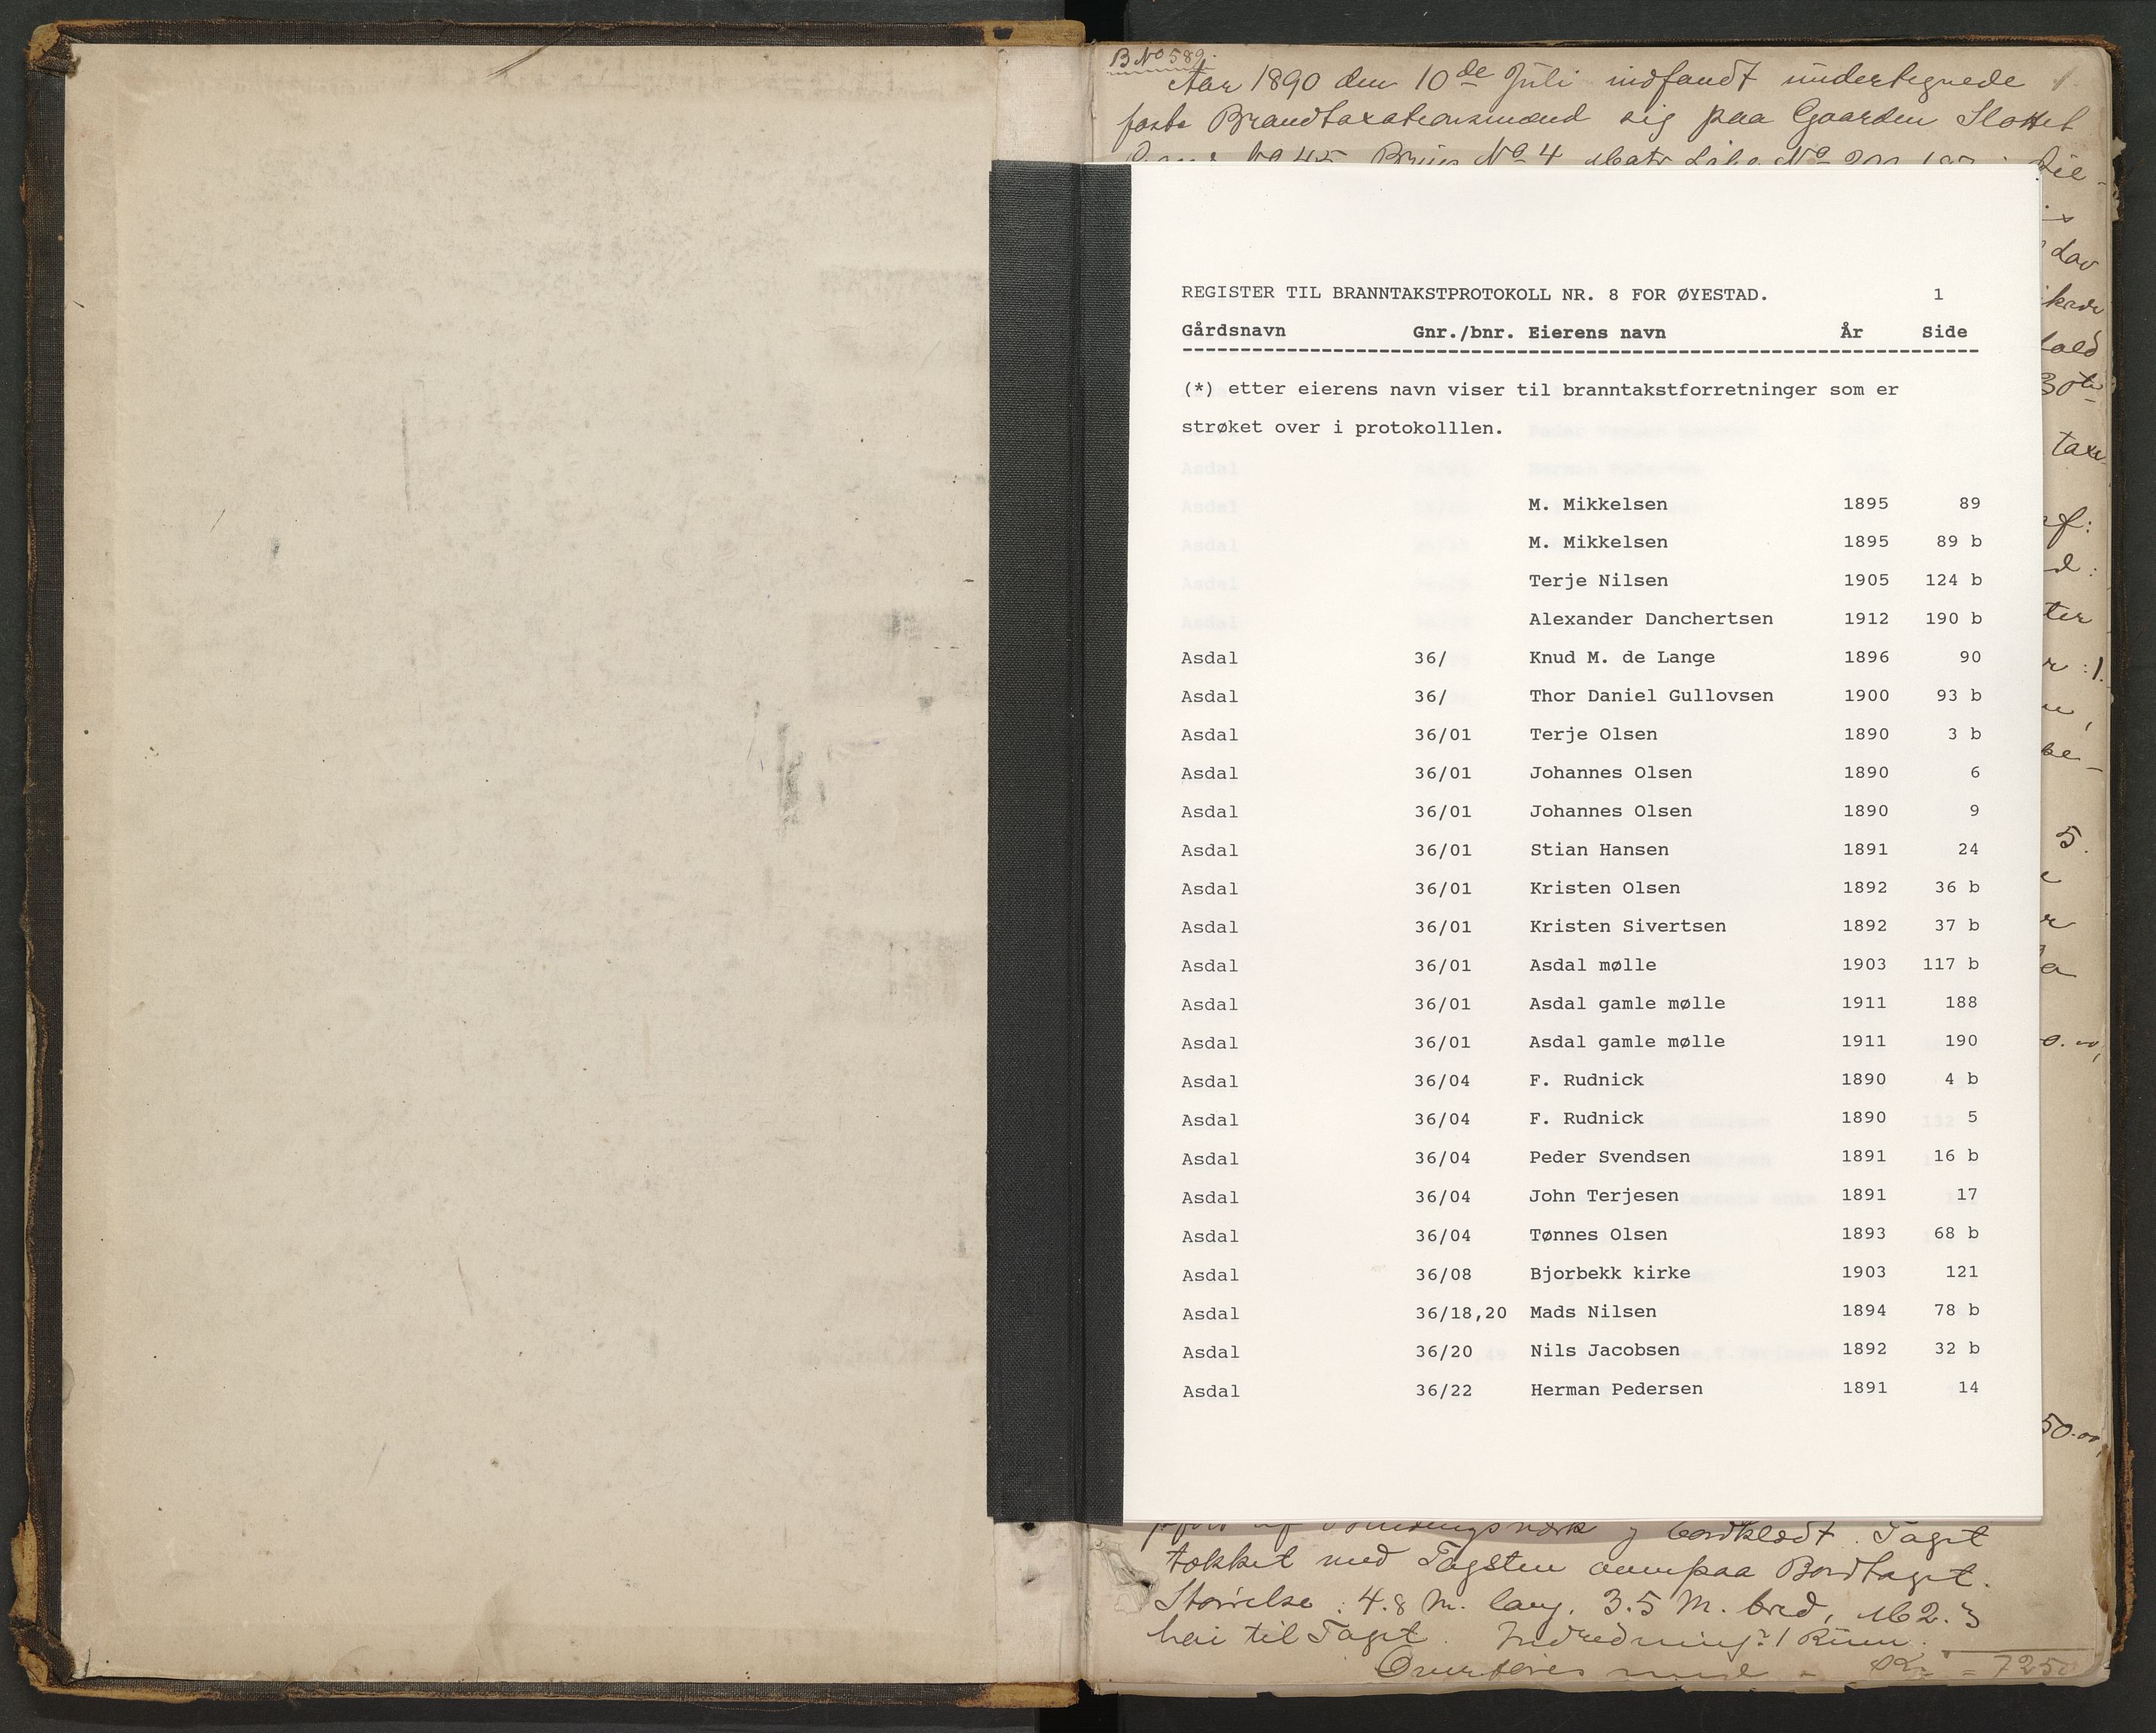 B No 589.
Aar 1890 den 10de Juli indfandt undertegnede 1.
faste Brandtaxationsmænd sig paa Gaarden Slottet
No 45 Brugs No 4 Matr Løbe No
REGISTER TIL BRANNTAKSTPROTOKOLL NR. 8 FOR ØYESTAD. 1
Gårdsnavn Gnr./bnr. Eierens navn År Side
(*) etter eierens navn viser til branntakstforretninger som er
strøket over i protokolllen.
M. Mikkelsen 1895 89
M. Mikkelsen 1895 89 b
Terje Nilsen 1905 124 b
Alexander Danchertsen 1912 190 b
Asdal 36/ Knud M. de Lange 1896 90
Asdal 36/ Thor Daniel Gullovsen 1900 93 b
Asdal 36/01 Terje Olsen 1890 3 b
Asdal 36/01 Johannes Olsen 1890 6
Asdal 36/01 Johannes Olsen 1890 9
Asdal 36/01 Stian Hansen 1891 24
Asdal 36/01 Kristen Olsen 1892 36 b
Asdal 36/01 Kristen Sivertsen 1892 37 b
Asdal 36/01 Asdal mølle 1903 117 b
Asdal 36/01 Asdal gamle mølle 1911 188
Asdal 36/01 Asdal gamle mølle 1911 190
Asdal 36/04 F. Rudnick 1890 4 b
Asdal 36/04 F. Rudnick 1890 5
Asdal 36/04 Peder Svendsen 1891 16 b
Asdal 36/04 John Terjesen 1891 17
Asdal 36/04 Tønnes Olsen 1893 68 b
Asdal 36/08 Bjorbekk kirke 1903 121
Asdal 36/18,20 Mads Nilsen 1894 78 b
Asdal 36/20 Nils Jacobsen 1892 32 b
Asdal 36/22 Herman Pedersen 1891 14
af Bindingsværk og bordklædt. Taget
tækket med Tagsten ovenpaa Bordtaget.
Størrelse: 4.8 M. lang, 3.5 M. bred, 2.3
høi til Taget. Indredning: 1 Rum.
Overføres 7250